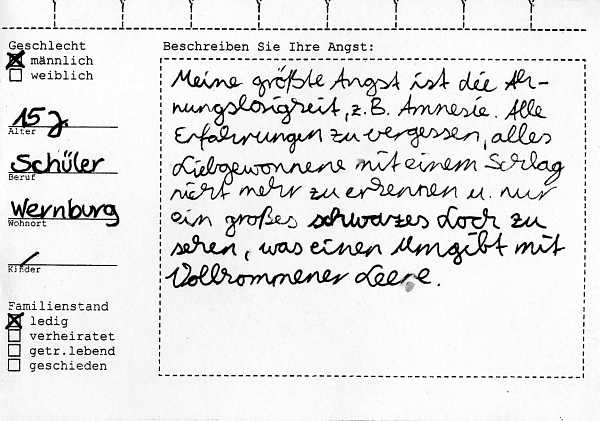 Geschlecht
☒ männlich
☐ weiblich
15 J.
Alter
Schüler
Beruf
Wernburg
Wohnort
/
Kinder
Familienstand
☒ ledig
☐ verheiratet
☐ getr.lebend
☐ geschieden
Beschreiben Sie Ihre Angst:
Meine größte Angst ist die Ah-
nungslosigkeit, z.B. Amnesie. Alle
Erfahrungen zu vergessen, alles
Liebgewonnene mit einem Schlag
nicht mehr zu erkennen u. nur
ein großes schwarzes Loch zu
sehen, was einen umgibt mit
Vollkommener Leere.